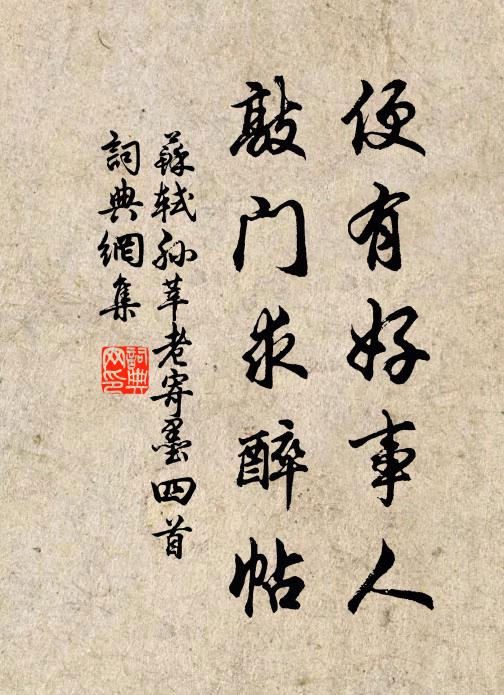 便有好事人
敲门求醉帖
蘇軾孫莘老寄墨四首
詞典網集
詞典网印